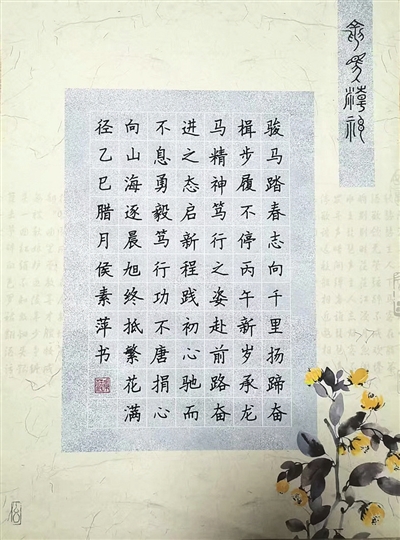 骏马踏春志向千里扬蹄奋
揖步履不停丙午新岁承龙
马精神笃行之姿赴前路奋
进之态启新程践初心驰而
不息勇毅笃行功不唐捐心
向山海逐晨旭终抵繁花满
径乙巳腊月侯素萍书